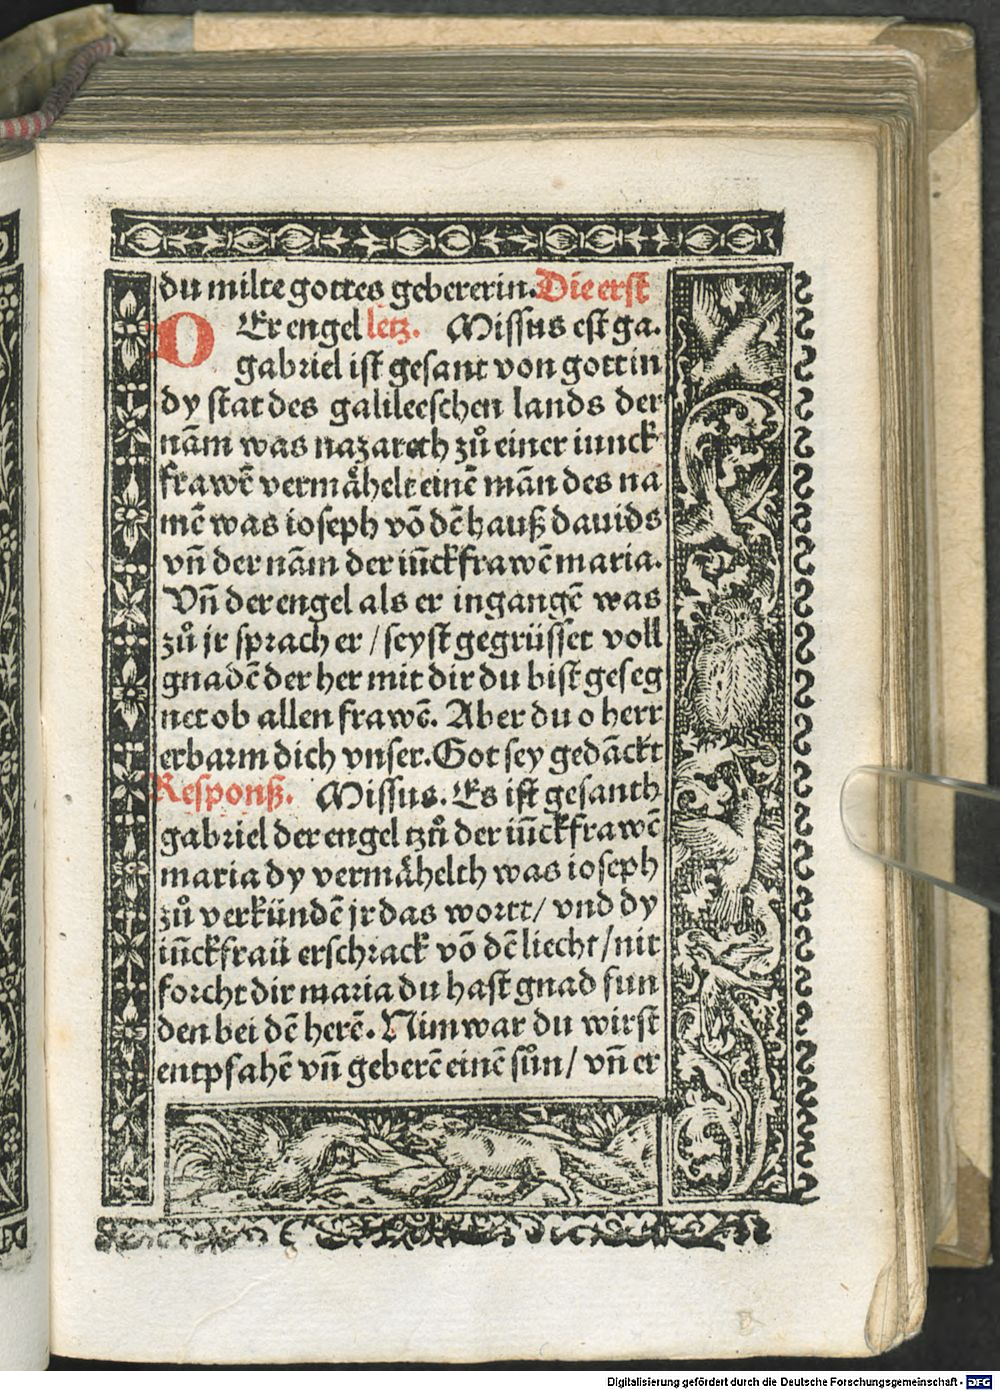 du milte gottes gebererin. Die erst
DEr engel letz. Missus est ga.
gabriel ist gesant von gott in
dy stat des galileeschen lands der
nām was nazareth zů einer iunck
frawē vermåhelt einē mān des na
mē was ioseph vō dē hauß dauids
vn̄ der nām der iūckfrawē maria.
Vn̄ der engel als er ingangē was
zů jr sprach er / seyst gegrüsset voll
gnadē der her mit dir du bist geseg
net ob allen frawē. Aber du o herr
erbarm dich vnser. Got sey gedāckt
Responß. Missus. Es ist gesanth
gabriel der engel tzů der iūckfrawē
maria dy vermåhelth was ioseph
zů verkündē jr das wortt / vnd dy
iūckfraü erschrack vō dē liecht / nit
forcht dir maria du hast gnad fun
den bei dē herē. Nim war du wirst
entpfahē vn̄ geberē einē sůn / vn̄ er
Digitalisierung gefördert durch die Deutsche Forschungsgemeinschaft - DFG